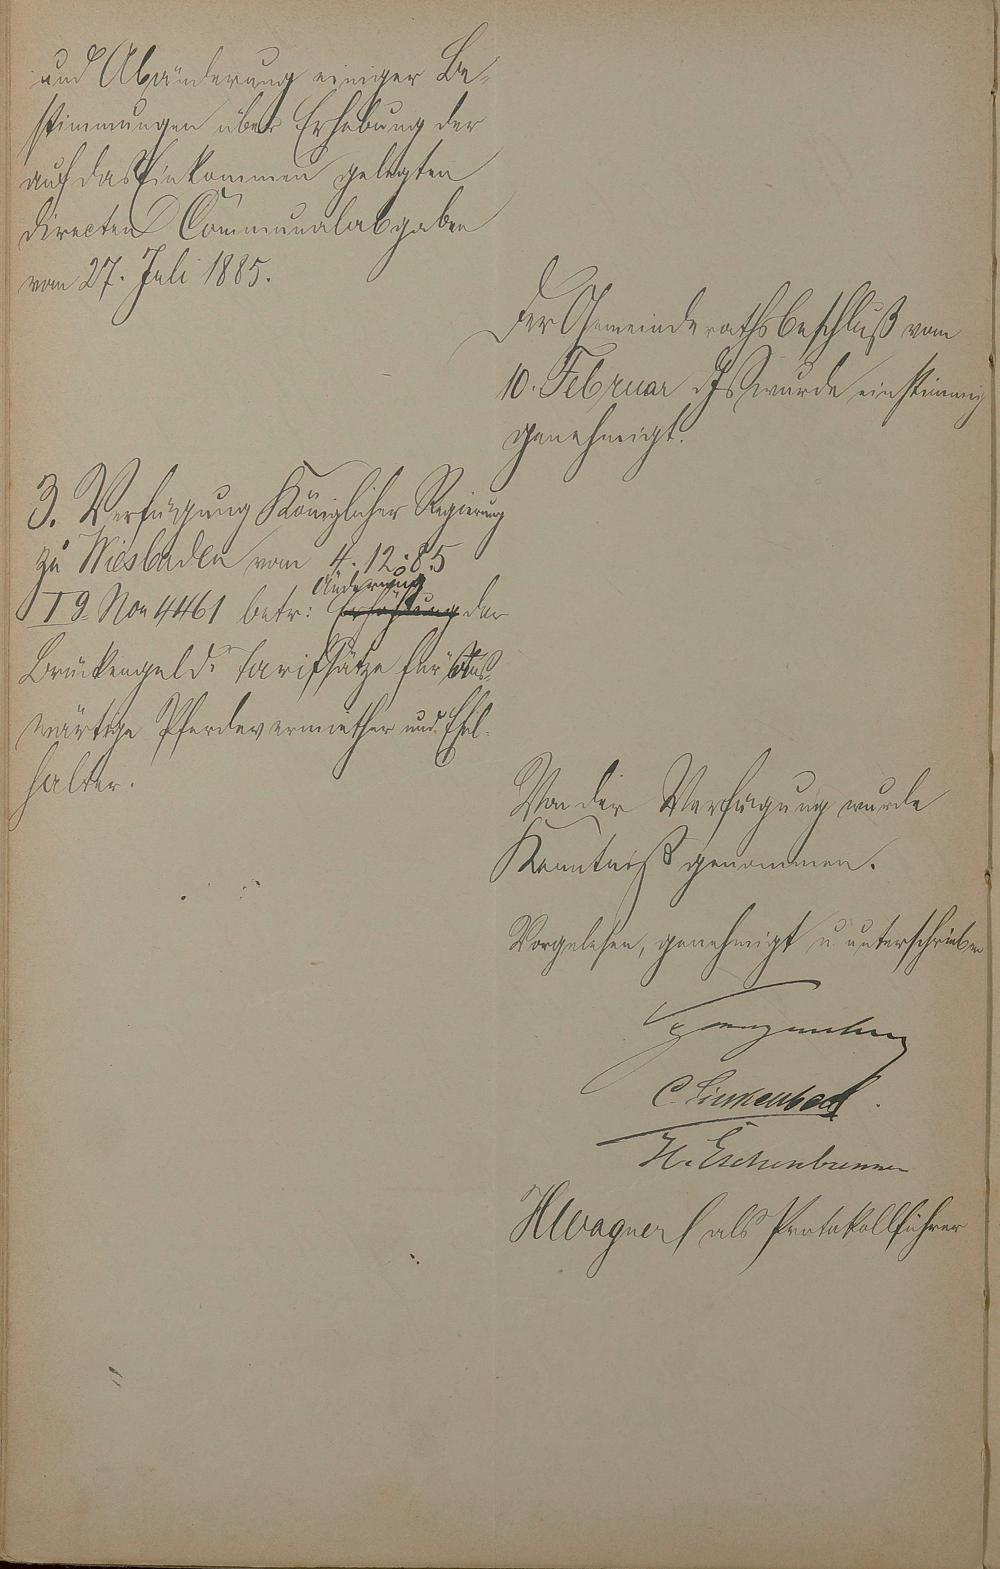 und Abänderung einiger Be-
stimmungen über Erhebung der
auf das Einkommen gelegten
directen Communalabgaben
vom 27. Juli 1885.
Der Gemeinderathsbeschluß vom
10. Februar ds Js wurde einstimmig
genehmigt.
3. Verfügung Königlicher Regierung
zu Wiesbaden vom 4. 12. 85
Änderung
I 9. Non 4461 betr: Erhöhung der
Brückengeld. Tarifsätze für Aus-
wärtige Pferdevermiether und Esel-
halter.
Von der Verfügung wurde
Kenntniß genommen.
Vorgelesen, genehmigt u. unterschrieben
C. Linkenbach.
H. Eschenbrenner
HWagner als Protokollführer